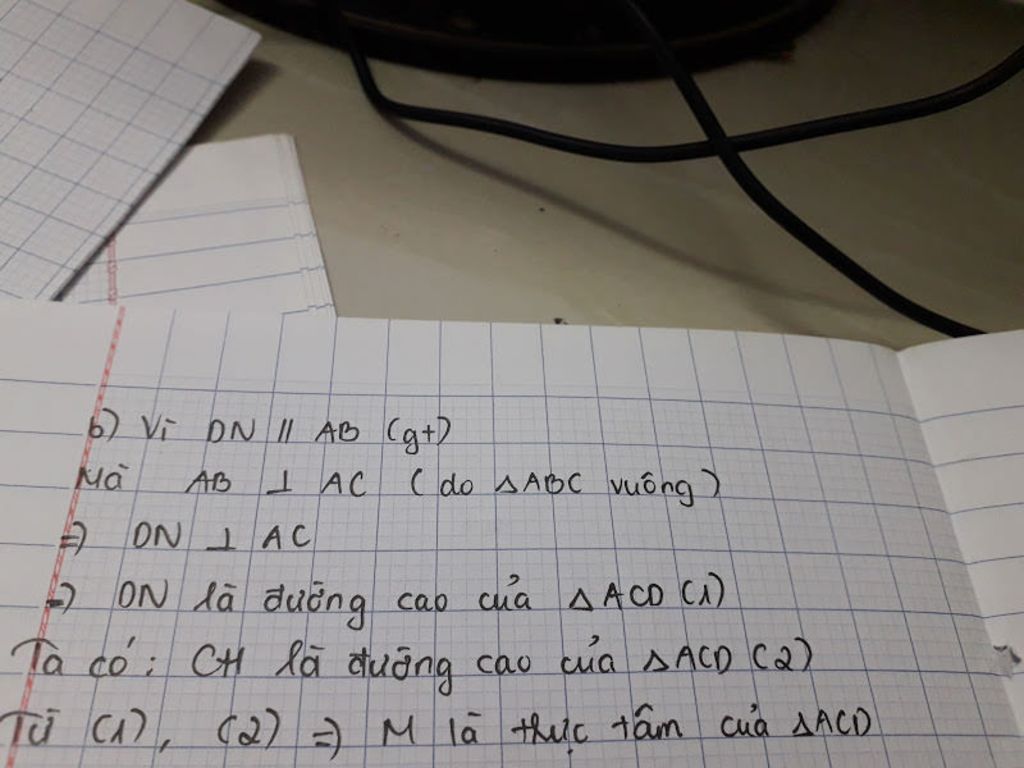 b) Vì DN // AB (gt)
Mà AB ⊥ AC (do △ABC vuông)
=> DN ⊥ AC
=> DN là đường cao của △ACD (1)
Ta có: CH là đường cao của △ACD (2)
Từ (1), (2) => M là thực tâm của △ACD